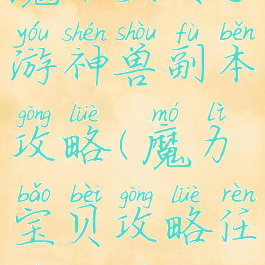 yóu shén shòu fù běn
游神兽副本
gōng lüè mó lì
攻略(魔力
bǎo bèi gōng lüè rèn
宝贝攻略任